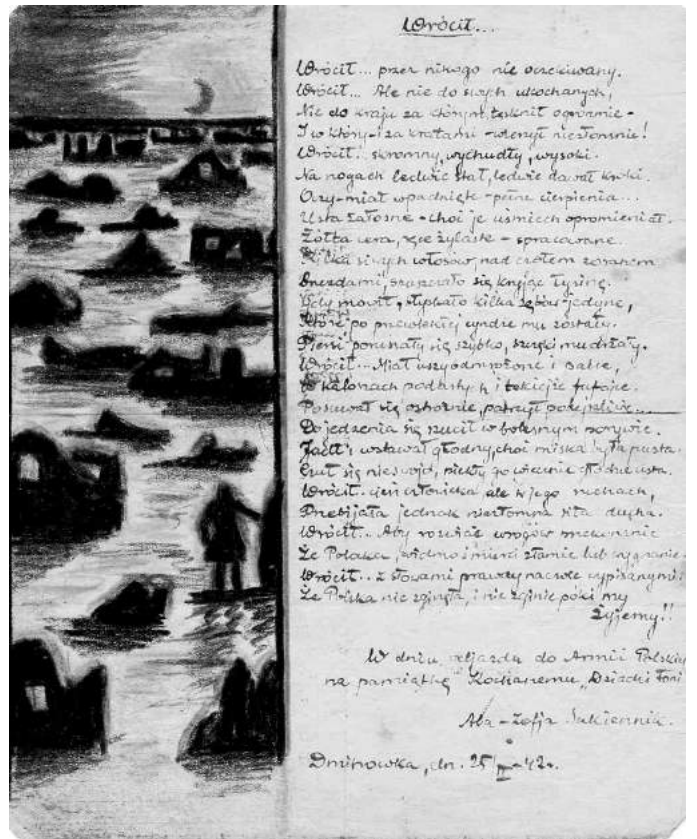 Wrócił...
Wrócił... przez nikogo nie oczekiwany.
Wrócił... Ale nie do swych ukochanych,
Nie do kraju za którym tęsknił ogromnie -
I w który - i za kratami - wierzył niezłomnie!
Wrócił.. skromny, wychudły, wysoki.
Na nogach ledwie stał, ledwie dawał kroki.
Oczy - miał wpadnięte - pełne cierpienia...
Usta żałosne - choć je uśmiech opromieniał.
Żółta cera, ręce żylaste - spracowane.
Kilka siwych włosów, nad czołem zoranem
Bruzdami, się kryjąc łysinę.
Gdy mówił, kilka zębów - jedyne,
Które po cyndze mu zostały.
Piersi poruszały się szybko, szczęki mu drżały.
Wrócił... Miał uszy odmrożone i palce,
W kalonach podartych i takiejże fufajce.
Posuwał się ostrożnie, patrzył
Do jedzenia się rzucił w bolesnym porywie.
Jadł i wstawał głodny, choć miska była pusta.
Czuł się nieswojo, piekły go wiecznie głodne usta.
Wrócił.. cień człowieka ale w jego ruchach,
Przebijała jednak niezłomna siła ducha.
Wrócił.. Aby wrogów
Że Polaka, widmo śmierci złamie lub wygnanie.
Wrócił.. z słowami prawdy na czole wypisanymi:
Że Polska nie zginęła, i nie zginie póki my
Żyjemy!!
W dniu odjazdu do Armii Polskiej
na pamiątkę Kochanemu "Dziadzi Toni
Ala - Zofja Sukiennik.
Dmitrowka, dn. 25/II - 42 r.